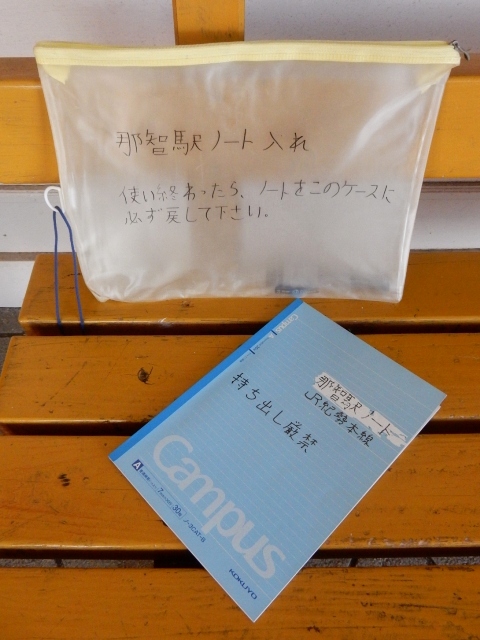 那智駅ノート入れ
使い終わったら、ノートをこのケースに
必ず戻して下さい。
Campus
那智駅ノート
JR紀勢本線
持ち出し厳禁
Campus
A
KOKUYO